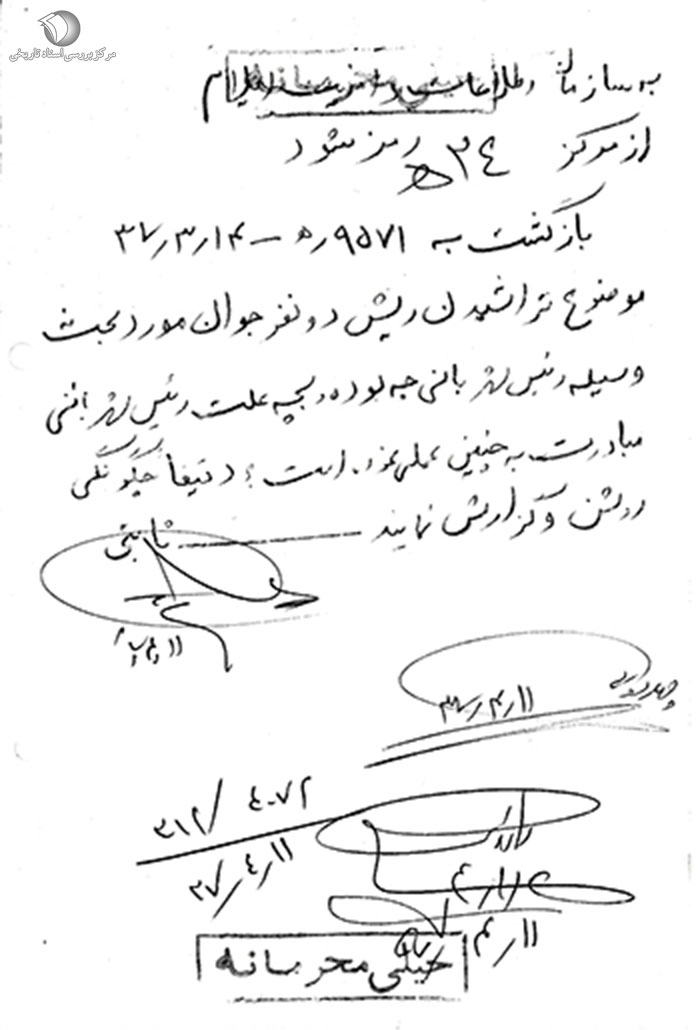 مرکز بررسی اسناد تاریخی
به سازمان اطلاعات و امنیت ایلام
از مرکز ۳۲۴ رمز شود
بازگشت به ۹۵۷۱ره – ۳۷٫۳٫۱۴
موضوع تراشیدن ریش دو نفر جوان مورد بحث
وسیله رئیس شهربانی چه بوده و بچه علت رئیس شهربانی
مبادرت به چنین عملی نموده است؛ دقیقا چگونگی
روشن و گزارش نمایند — ثابتی
۳۷٫۴٫۱۱
۴۰۷۲ / ۳۱۲
۳۷٫۴٫۱۱
۴٫۱۱
خیلی محرمانه